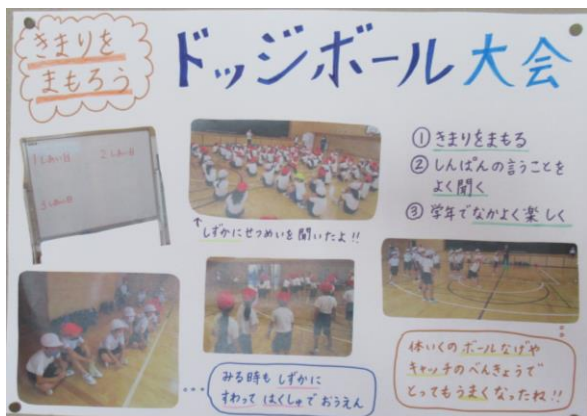 きまりを
まもろう
ドッジボール大会
1しあい目 2しあい目
3しあい目
① きまりをまもる
② しんぱんの言うことを
よく聞く
③ 学年でなかよく楽しく
↑
しずかにせつめいを聞いたよ!!
みる時も しずかに
すわって はくしゅで おうえん
体いくの ボールなげや
キャッチのべんきょうで
とってもうまくなったね!!